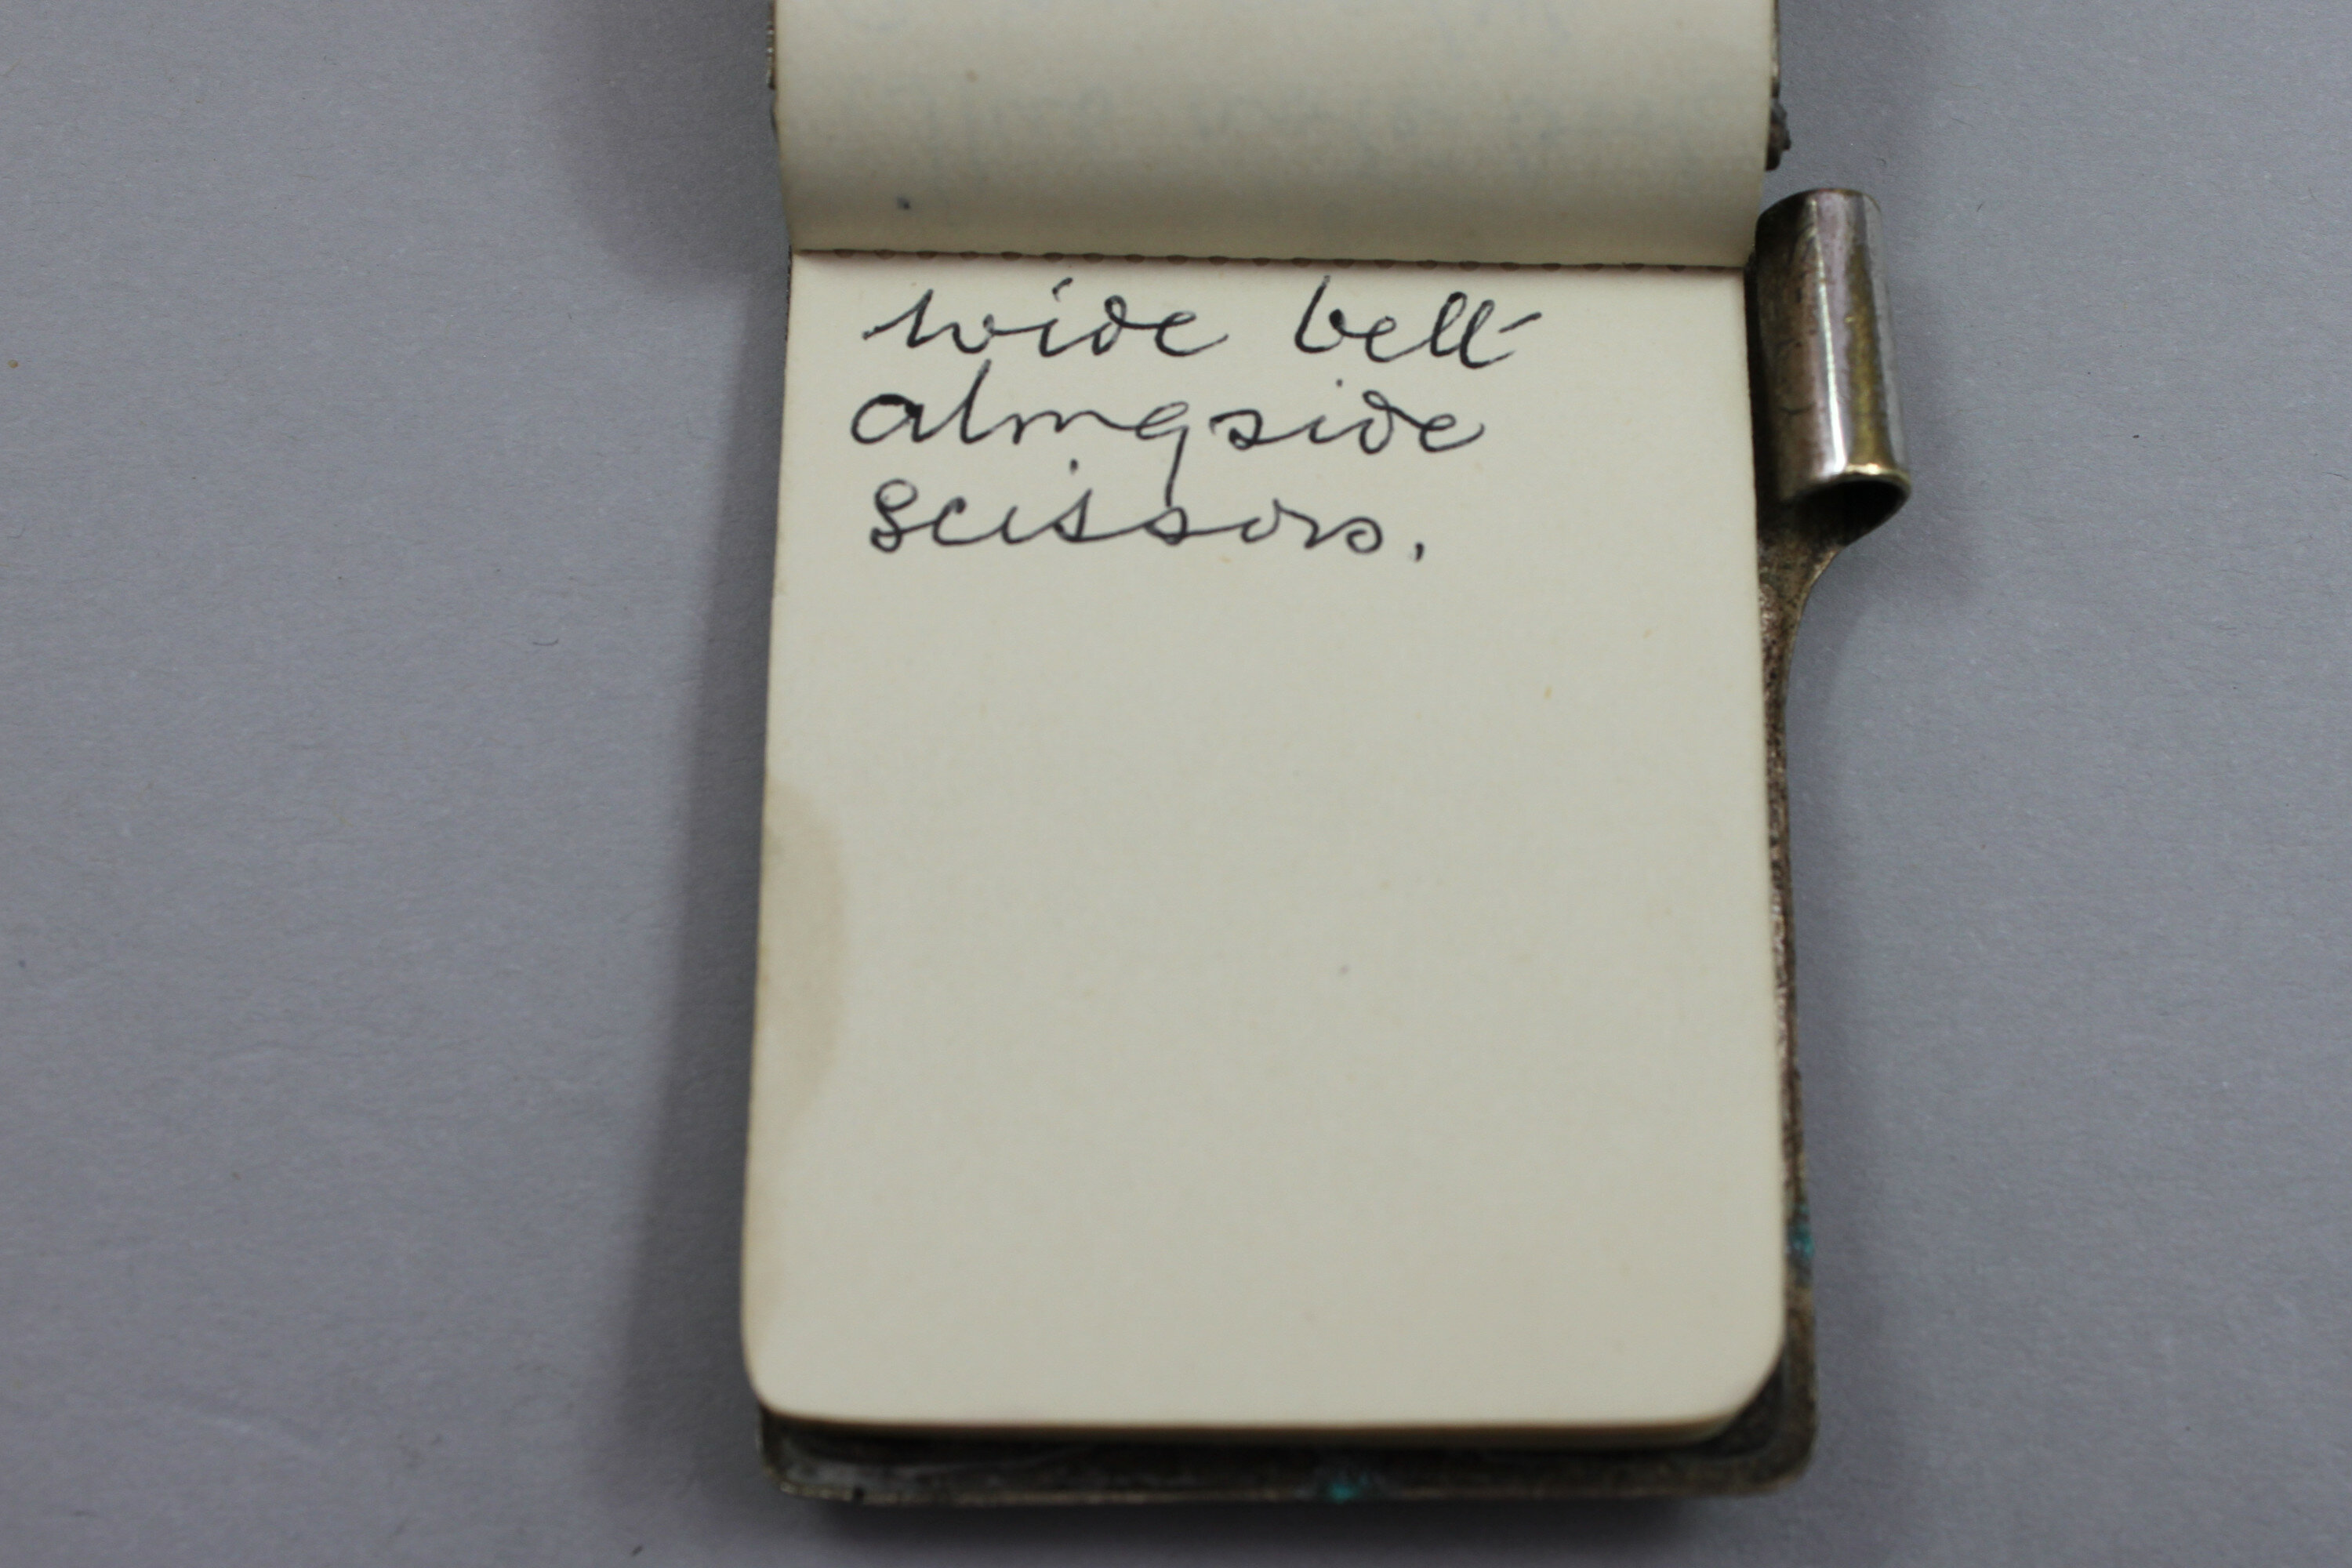 wide belt
alongside
scissors.